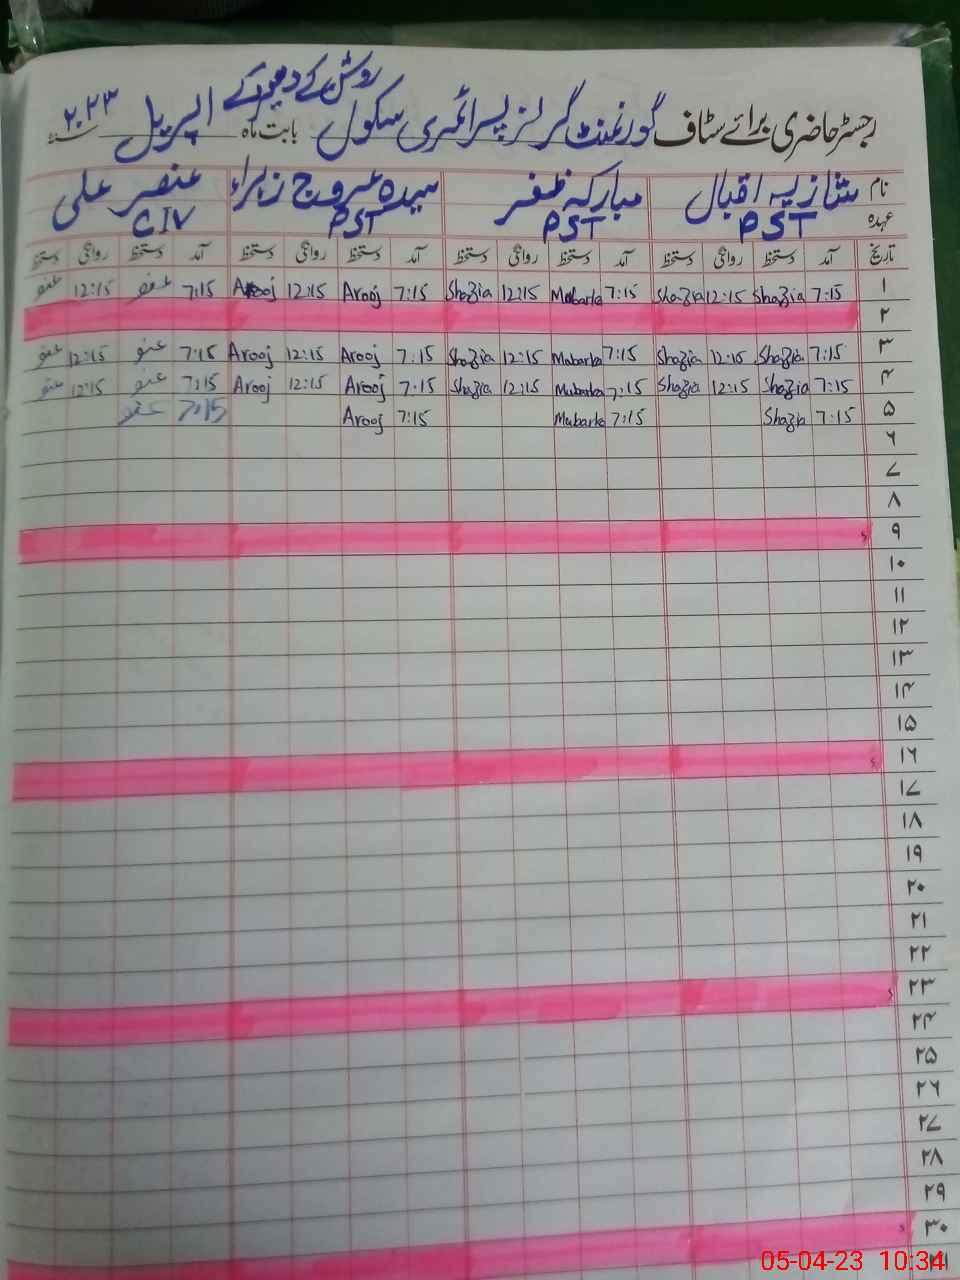 روشن کے دھیر کے
رجسٹر حاضری برائے سٹاف گورنمنٹ گرلز پرائمری سکول بابت ماہ اپریل ۲۰۲۳
نام شازیہ اقبال مبارکہ ظفر سیدہ عروج زہراء عنصر علی
عہدہ PST PST PST CIV
تاریخ آمد دستخط روانگی دستخط آمد دستخط روانگی دستخط آمد دستخط روانگی دستخط آمد دستخط روانگی دستخط
۱ 7:15 Shazia 12:15 Shazia 7:15 Mubarka 12:15 Shazia 7:15 Arooj 12:15 Arooj 7:15 عنصر 12:15 عنصر
۲
۳ 7:15 Shazia 12:15 Shazia 7:15 Mubarka 12:15 Shazia 7:15 Arooj 12:15 Arooj 7:15 عنصر 12:15 عنصر
۴ 7:15 Shazia 12:15 Shazia 7:15 Mubarka 12:15 Shazia 7:15 Arooj 12:15 Arooj 7:15 عنصر 12:15 عنصر
۵ 7:15 Shazia 7:15 Mubarka 7:15 Arooj 7:15 عنصر
۶
۷
۸
۹
۱۰
۱۱
۱۲
۱۳
۱۴
۱۵
۱۶
۱۷
۱۸
۱۹
۲۰
۲۱
۲۲
۲۳
۲۴
۲۵
۲۶
۲۷
۲۸
۲۹
۳۰
۳۱
05-04-23 10:34